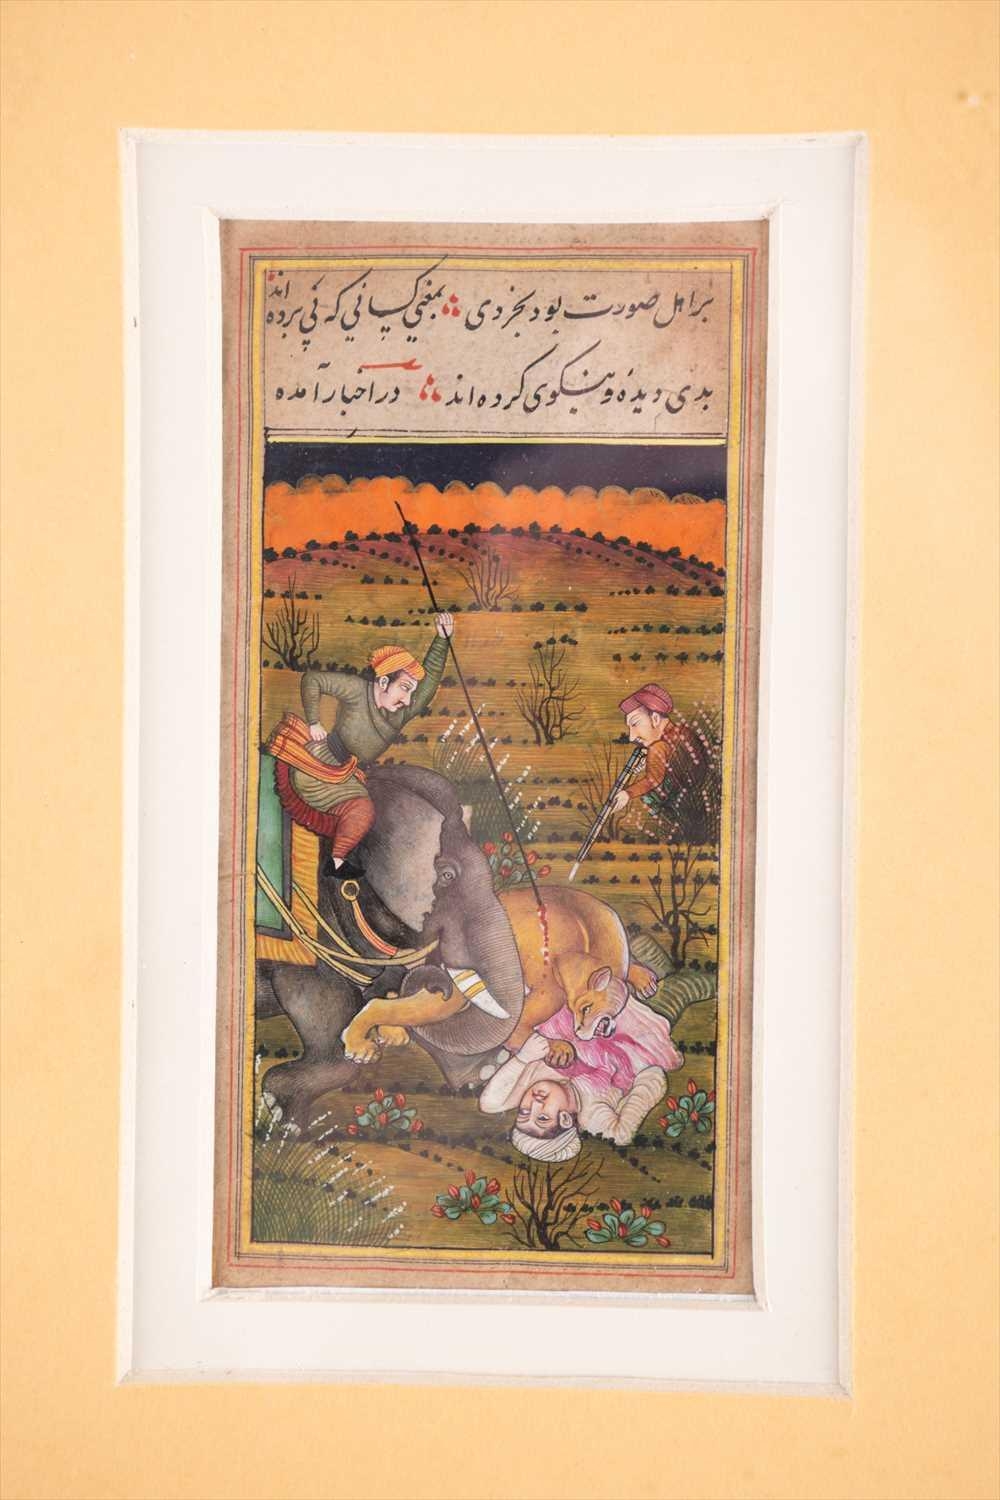 بر اهل صورت بود بخردی بمعنی کسانی که پی برده اند
بدی دیده و نیکوی کرده اند در اخبار آمده